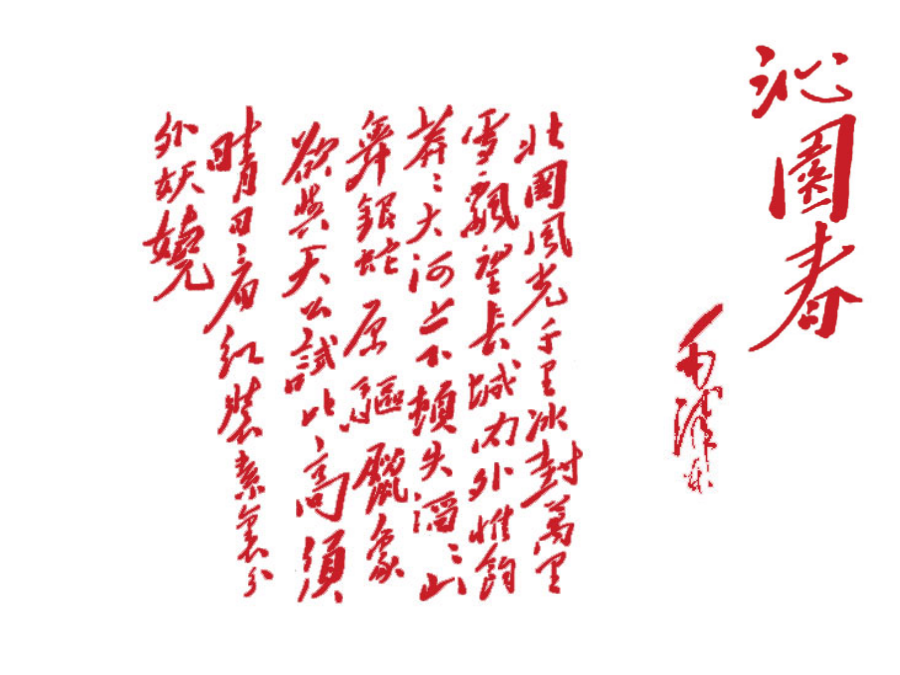 沁園春
毛澤東
北國風光千里冰封萬里
雪飄望長城內外惟餘
莽〻大河上下頓失滔〻山
舞銀蛇原驅臘象
欲與天公試比高須
晴日看紅裝素裹分
外妖嬈